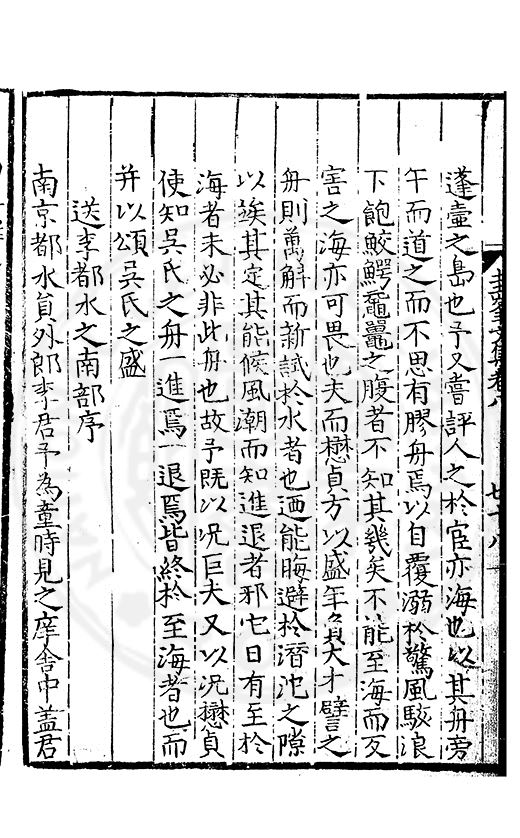 蓬壷之島也予又嘗評人之於宦亦海也以其舟旁
午而道之而不思有膠舟焉以自覆溺於驚風駭浪
下飽鮫鰐黿鼉之腹者不知其幾矣不能至海而反
害之海亦可畏也夫而懋貞方以盛年負大才譬之
舟則萬斛而新試於水者也迺能晦避於潛沱之隙
以竢其定其能候風潮而知進退者邪它日有至於
海者未必非此舟也故予既以况巨夫又以况懋貞
使知吳氏之舟一進焉一退焉皆終於至海者也而
并以頌吳氏之盛
送李都水之南部序
南京都水員外郎李君予為童時見之庠舍中盖君